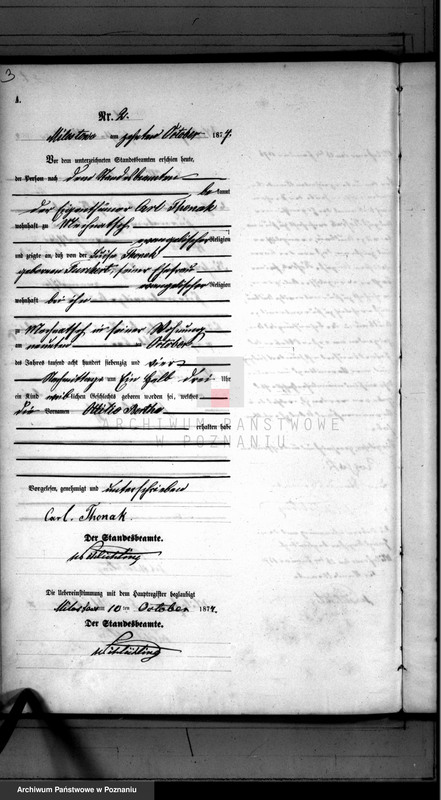 3
A.
Nr. 2.
Milostowo am zehnten October 1874.
Vor dem unterzeichneten Standesbeamten erschien heute,
der Person nach dem Standesbeamten
bekannt
der Eigenthümer Carl Thonak
wohnhaft zu
evangelischer Religion
und zeigte an, daß von der Luise Thonak
geborenen seiner Ehefrau
evangelischer Religion
wohnhaft bei ihm
zu in seiner Wohnung
am neunten October
des Jahres tausend acht hundert siebenzig und vier
Nachmittags um Ein halb drei Uhr
ein Kind weiblichen Geschlechts geboren worden sei, welches
die Vornamen Ottilie Bertha
erhalten habe
ARCHIWUM PAŃSTWOWE
W POZNANIU
Vorgelesen, genehmigt und unterschrieben
Carl. Thonak.
Der Standesbeamte.
Die Uebereinstimmung mit dem Hauptregister beglaubigt
Milostowo 10 ten October 1874.
Der Standesbeamte.
Archiwum Państwowe w Poznaniu